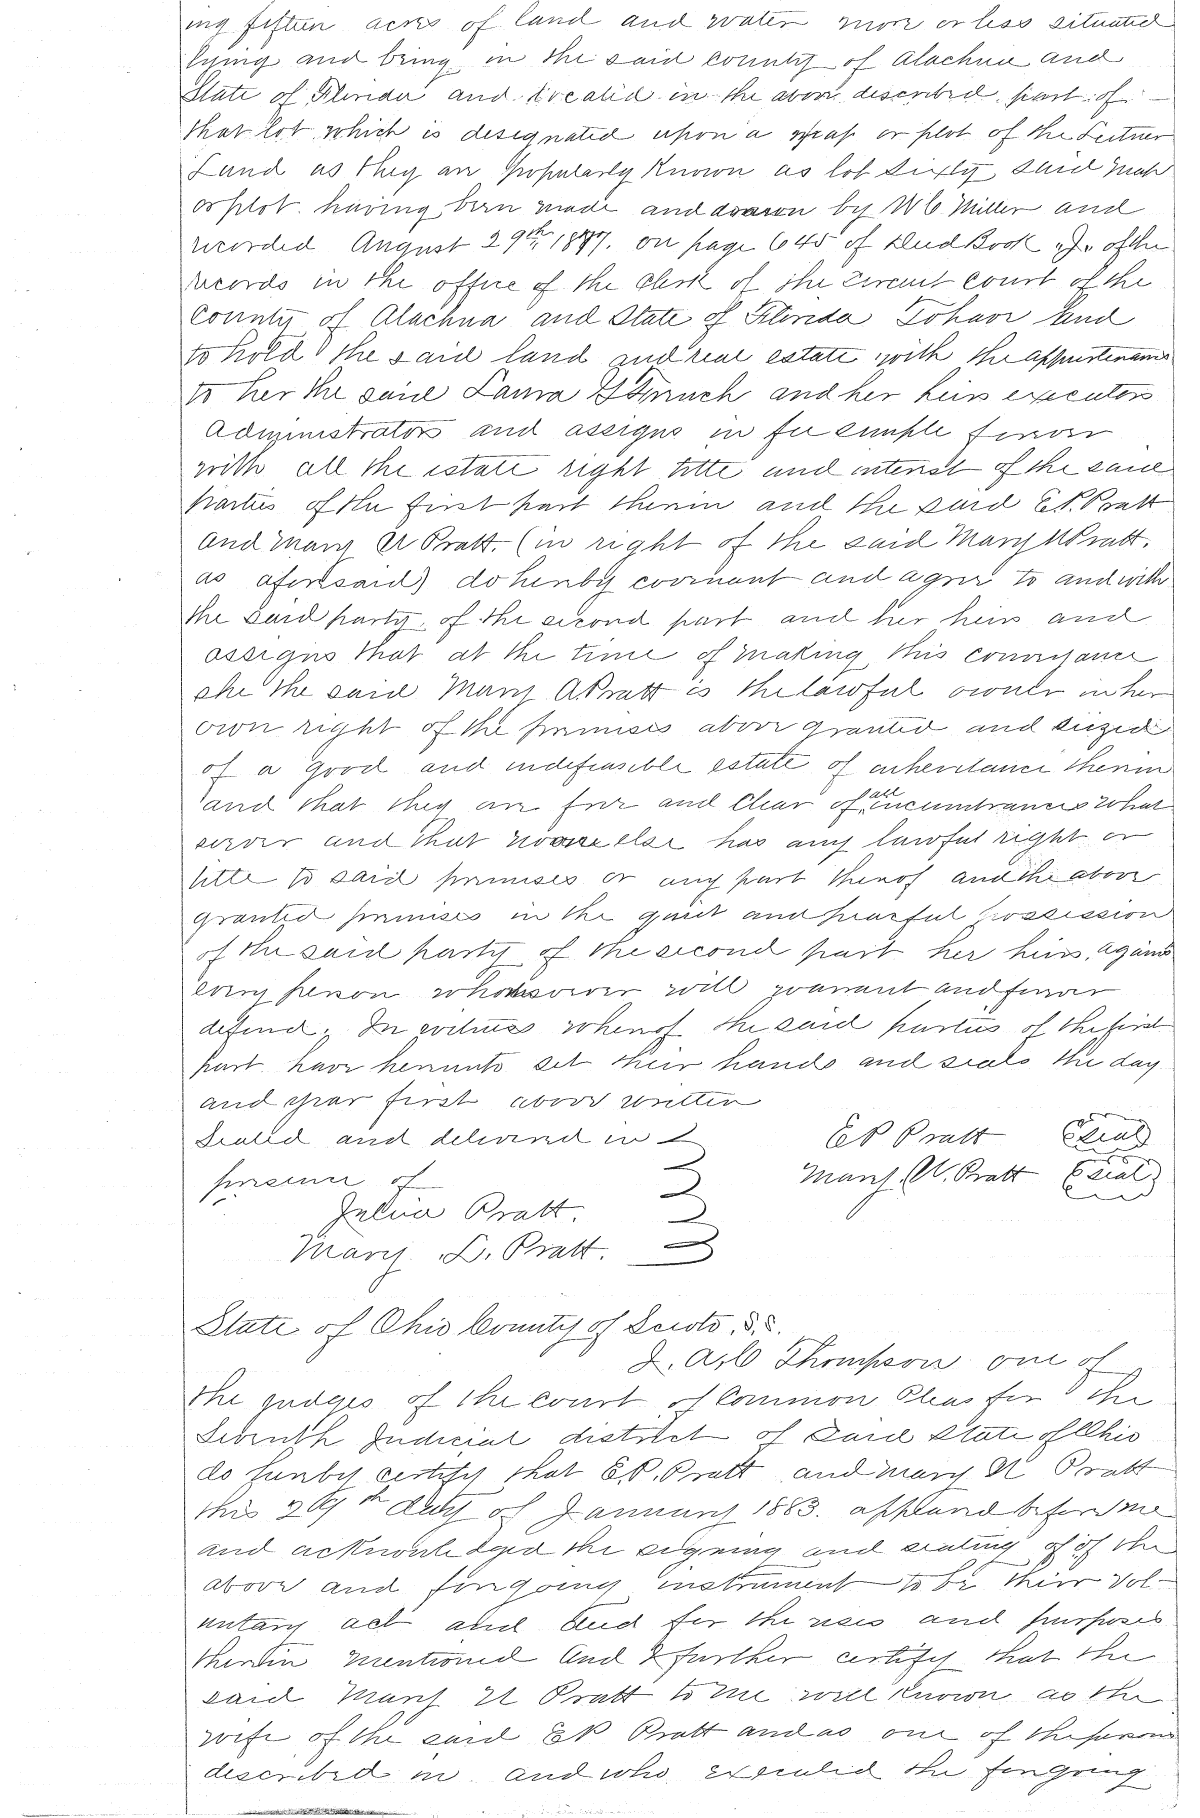 ing fifteen acres of land and water more or less situated
lying and being in the said county of Alachua and
State of Florida and located in the above described part of
that lot which is designated upon a map or plot of the Leitner
Land as they are popularly Known as lot Sixty said map
or plot having been made and drawn by W C Miller and
recorded August 29th 1877. on page 645 of Deed Book "J" of the
records in the office of the clerk of the circuit court of the
County of Alachua and State of Florida To have and
to hold the said land and real estate with the appurtenances
to her the said Laura and her heirs executors
Administrators and assigns in fee simple forever
with all the estate right title and interest of the said
parties of the first part therein and the said E.P. Pratt
and Mary A Pratt. (in right of the said Mary A Pratt.
as aforesaid) do hereby covenant and agree to and with
the said party of the second part and her heirs and
assigns that at the time of making this conveyance
she the said Mary A Pratt is the lawful owner in her
own right of the premises above granted and siezed
of a good and indefeasible estate of inheritance therein
and that they are free and clear of all incumbrances what
soever and that no one else has any lawful right or
title to said premises or any part thereof and the above
granted premises in the quiet and peaceful possession
of the said party of the second part her heirs, against
every person whomsoever will warrant and forever
defend. In witness whereof the said parties of the first
part have hereunto set their hands and seals the day
and year first above written
Sealed and delivered in E P Pratt (Seal)
presence of Mary A. Pratt (Seal)
Julia Pratt.
Mary L. Pratt.
State of Ohio County of Scioto, S.S.
I. A. C Thompson one of
the judges of the court of Common Pleas for the
Seventh Judicial district of said State of Ohio
do hereby certify that E.P. Pratt and Mary A Pratt
this 29th day of January 1883. appeared before me
and acknowledged the signing and sealing of of the
above and foregoing instrument to be their vol-
untary act and deed for the uses and purposes
therein mentioned And I further certify that the
said Mary A Pratt to me well Known as the
wife of the said E P Pratt and as one of the persons
described in and who executed the foregoing